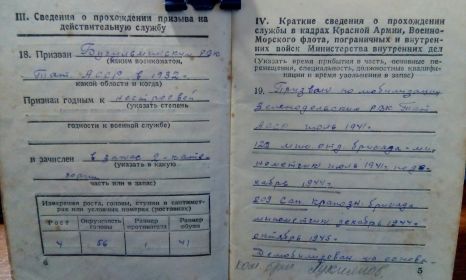 III. Сведения о прохождении призыва на
действительную службу
18. Призван Бугульминским РВК
(Каким военкоматом,
Тат. АССР в 1932 г.
какой области и когда)
Признан годным к нестроевой
(указать степень
годности к военной службе)
и зачислен в запас 2 кате-
(указать в какую
гории
часть или в запас)
Измерения роста, головы, ступни в сантимет-
рах или условных номерах (ростовках)
Рост Окружность головы Размер противогаза Размер обуви
4 56 1 41
6
IV. Краткие сведения о прохождении
службы в кадрах Красной Армии, Военно-
Морского флота, пограничных и внутрен-
них войск Министерства внутренних дел
(Указать время прибытия в часть, основные
перемещения, специальности, должностные квалифи-
кации и время увольнения в запас)
19. Призван по мобилизации
Зеленодольским РВК Тат
АССР июль 1941 г.
122 мин отд. бригада - ми
нометчик июль 1941 по де
кабрь 1944 г.
209 сап бригада
минометчик декабрь 1944
октябрь 1945 г.
Демобилизован на основа-
5